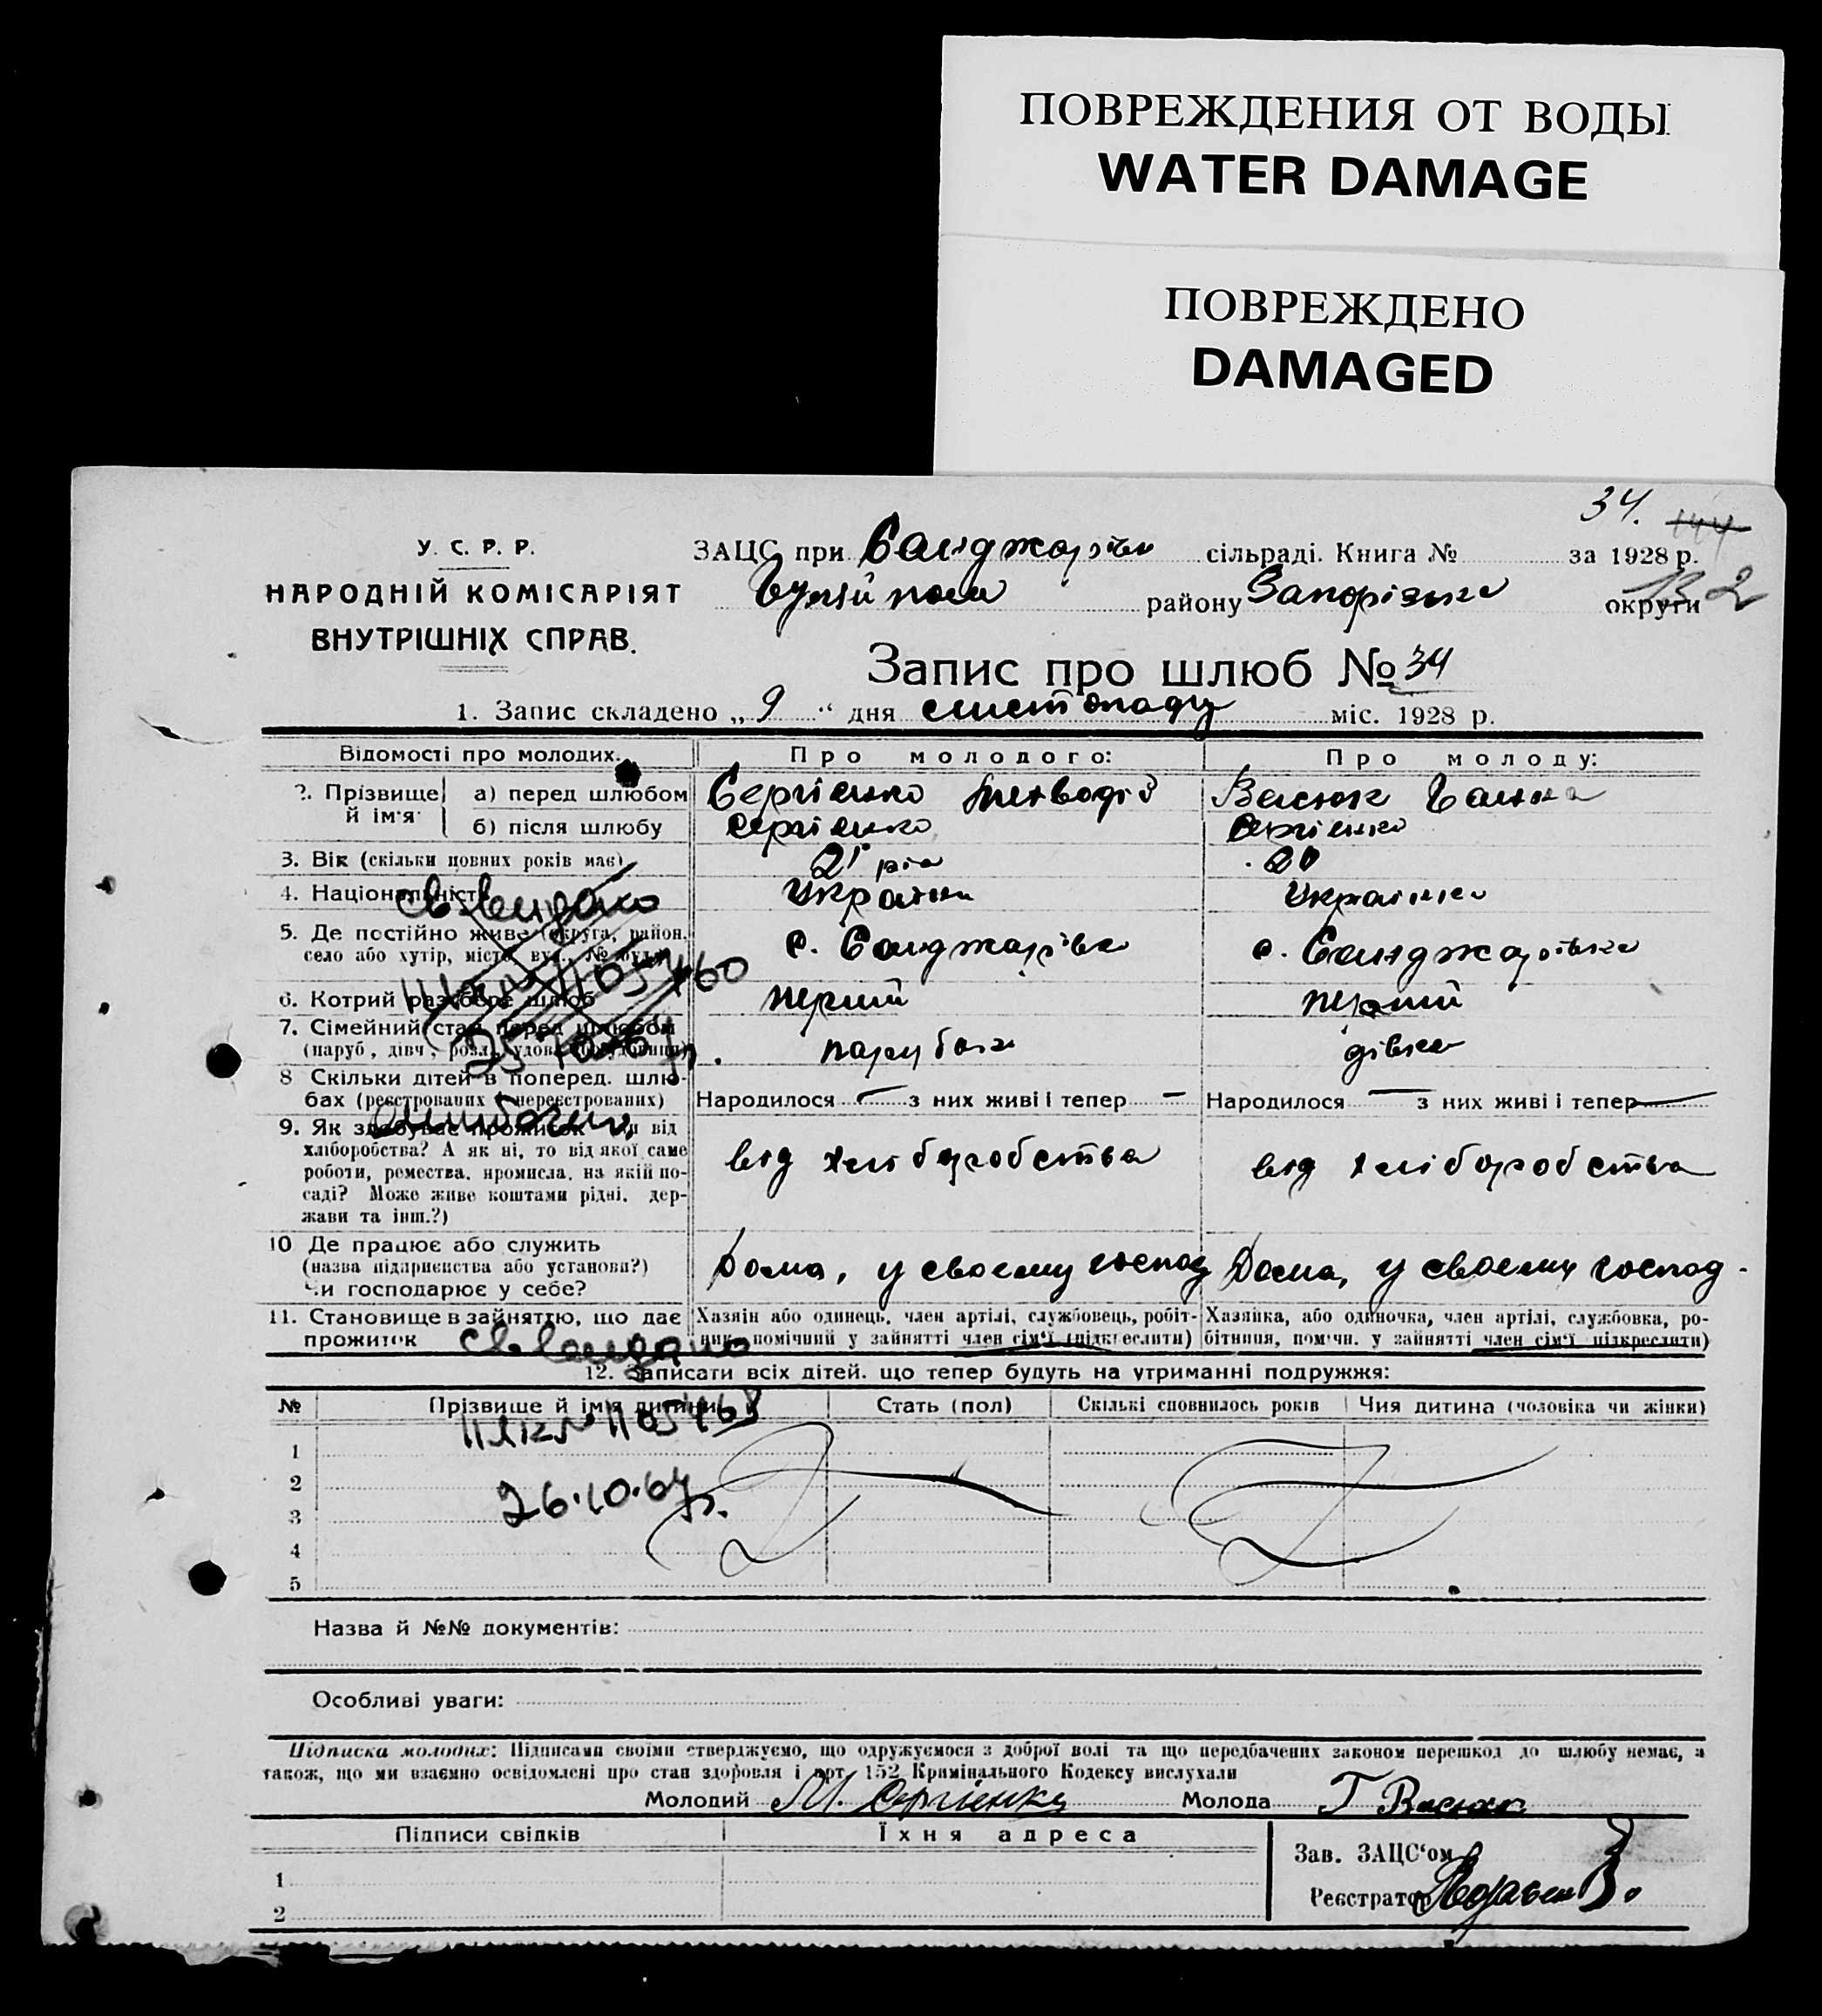 ПОВРЕЖДЕНИЯ ОТ ВОДЫ
WATER DAMAGE
ПОВРЕЖДЕНО
DAMAGED
34. 144
У. С. Р. Р.
НАРОДНІЙ КОМІСАРІЯТ
ВНУТРІШНІХ СПРАВ.
ЗАЦС при Санджарівці сільраді. Книга № за 1928 р.
району Запорізька округи 132
Запис про шлюб № 34
1. Запис складено „ 9 “ дня листопаду міс. 1928 р.
Відомості про молодих. Про молодого: Про молоду:
2. Прізвище й ім'я а) перед шлюбом Сергієнко Васюк Ганна
б) після шлюбу Сергієнко Сергієнко
3. Вік (скільки повних років має) 21 рік 20
4. Національність Українець Українка
5. Де постійно живе (округа, район, село або хутір, місто, вул., № буд.) с. Санджарівка с. Санджарівка
6. Котрий раз бере шлюб перший перший
7. Сімейний стан перед шлюбом
(паруб., дівч., розл., удова парубок дівка
8 Скільки дітей в поперед. шлю-
бах (реєстрованих і нереєстрованих) Народилося — з них живі і тепер — Народилося — з них живі і тепер —
9. Як здобуває прожиток чи від
хліборобства? А як ні, то від якої саме
роботи, ремества, промисла, на якій по-
саді? Може живе коштами рідні, дер-
жави та інш.?)
від хліборобства від хліборобства
10 Де працює або служить
(назва підприємства або установи?)
Чи господарює у себе?
Дома, у своєму господ Дома, у своєму господ.
11. Становище в зайняттю, що дає
прожиток
Хазяїн або одинець, член артілі, службовець, робіт-
ник, помічний у зайнятті член сім'ї (підкреслити)
Хазяйка, або одиночка, член артілі, службовка, ро-
бітниця, помічн. у зайнятті член сім'ї підкреслити)
1105460
ошибочно
12. Записати всіх дітей, що тепер будуть на утриманні подружжя:
№ Прізвище й ім'я дитини Стать (пол) Скількі сповнилось років Чия дитина (чоловіка чи жінки)
1
2
26.10.67г.
3
4
5
Назва й №№ документів:
Особливі уваги:
Підписка молодих: Підписами своїми стверджуємо, що одружуємося з доброї волі та що передбачених законом перешкод до шлюбу немає, а
також, що ми взаємно освідомлені про стан здоровля і арт. 152 Кримінального Кодексу вислухали
Молодий М. Сергієнко Молода Г Васюк
Підписи свідків Їхня адреса
1
2
Зав. ЗАЦС'ом
Реєстратор